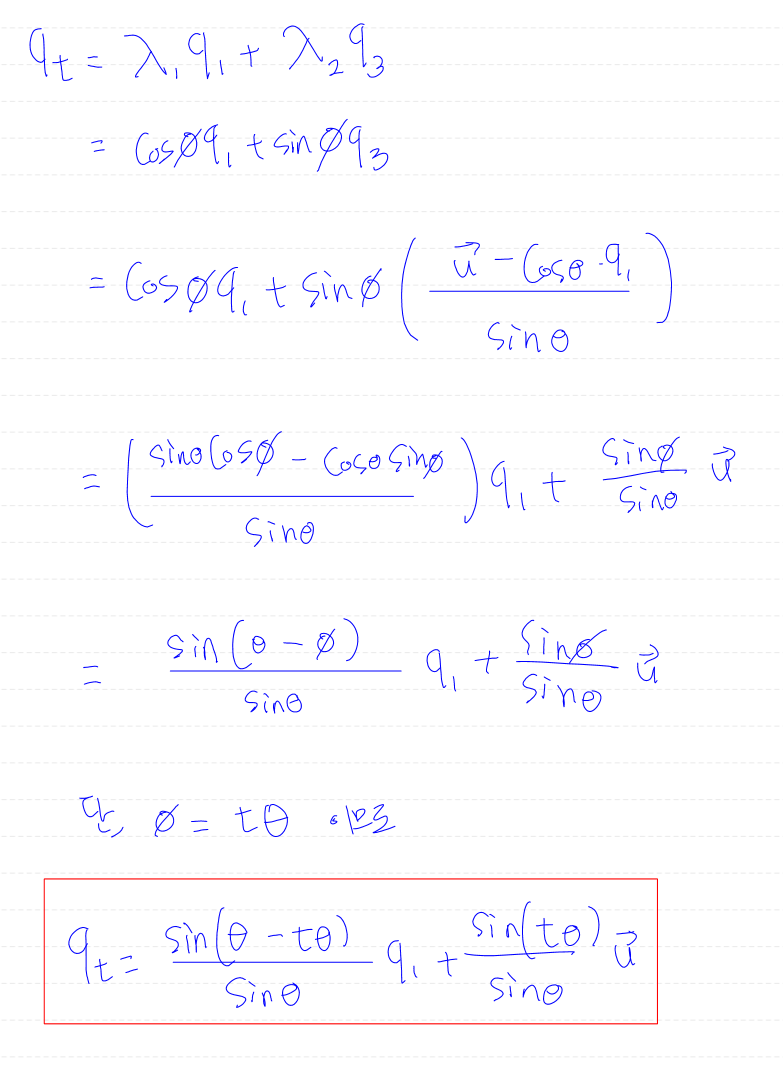 q_t = λ_1 q_1 + λ_2 q_3
= cosø q_1 + sinø q_3
= cosø q_1 + sinø ( (u⃗ - cosθ · q_1) / sinθ )
= ( (sinθ cosø - cosθ sinø) / sinθ ) q_1 + (sinø / sinθ) u⃗
= (sin(θ - ø) / sinθ) q_1 + (sinø / sinθ) u⃗
단, ø = tθ 이므로
q_t = (sin(θ - tθ) / sinθ) q_1 + (sin(tθ) / sinθ) u⃗